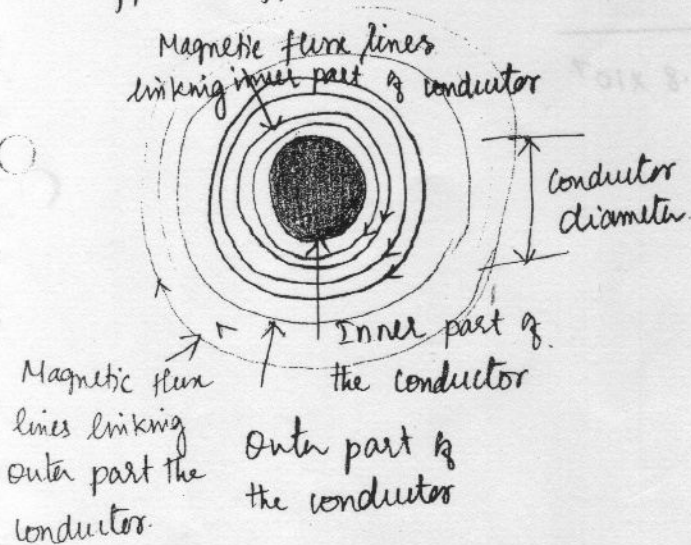 Magnetic flux lines
linking inner part of conductor
conductor
diameter.
Inner part of
the conductor
Magnetic flux
lines linking
outer part the
conductor.
Outer part of
the conductor